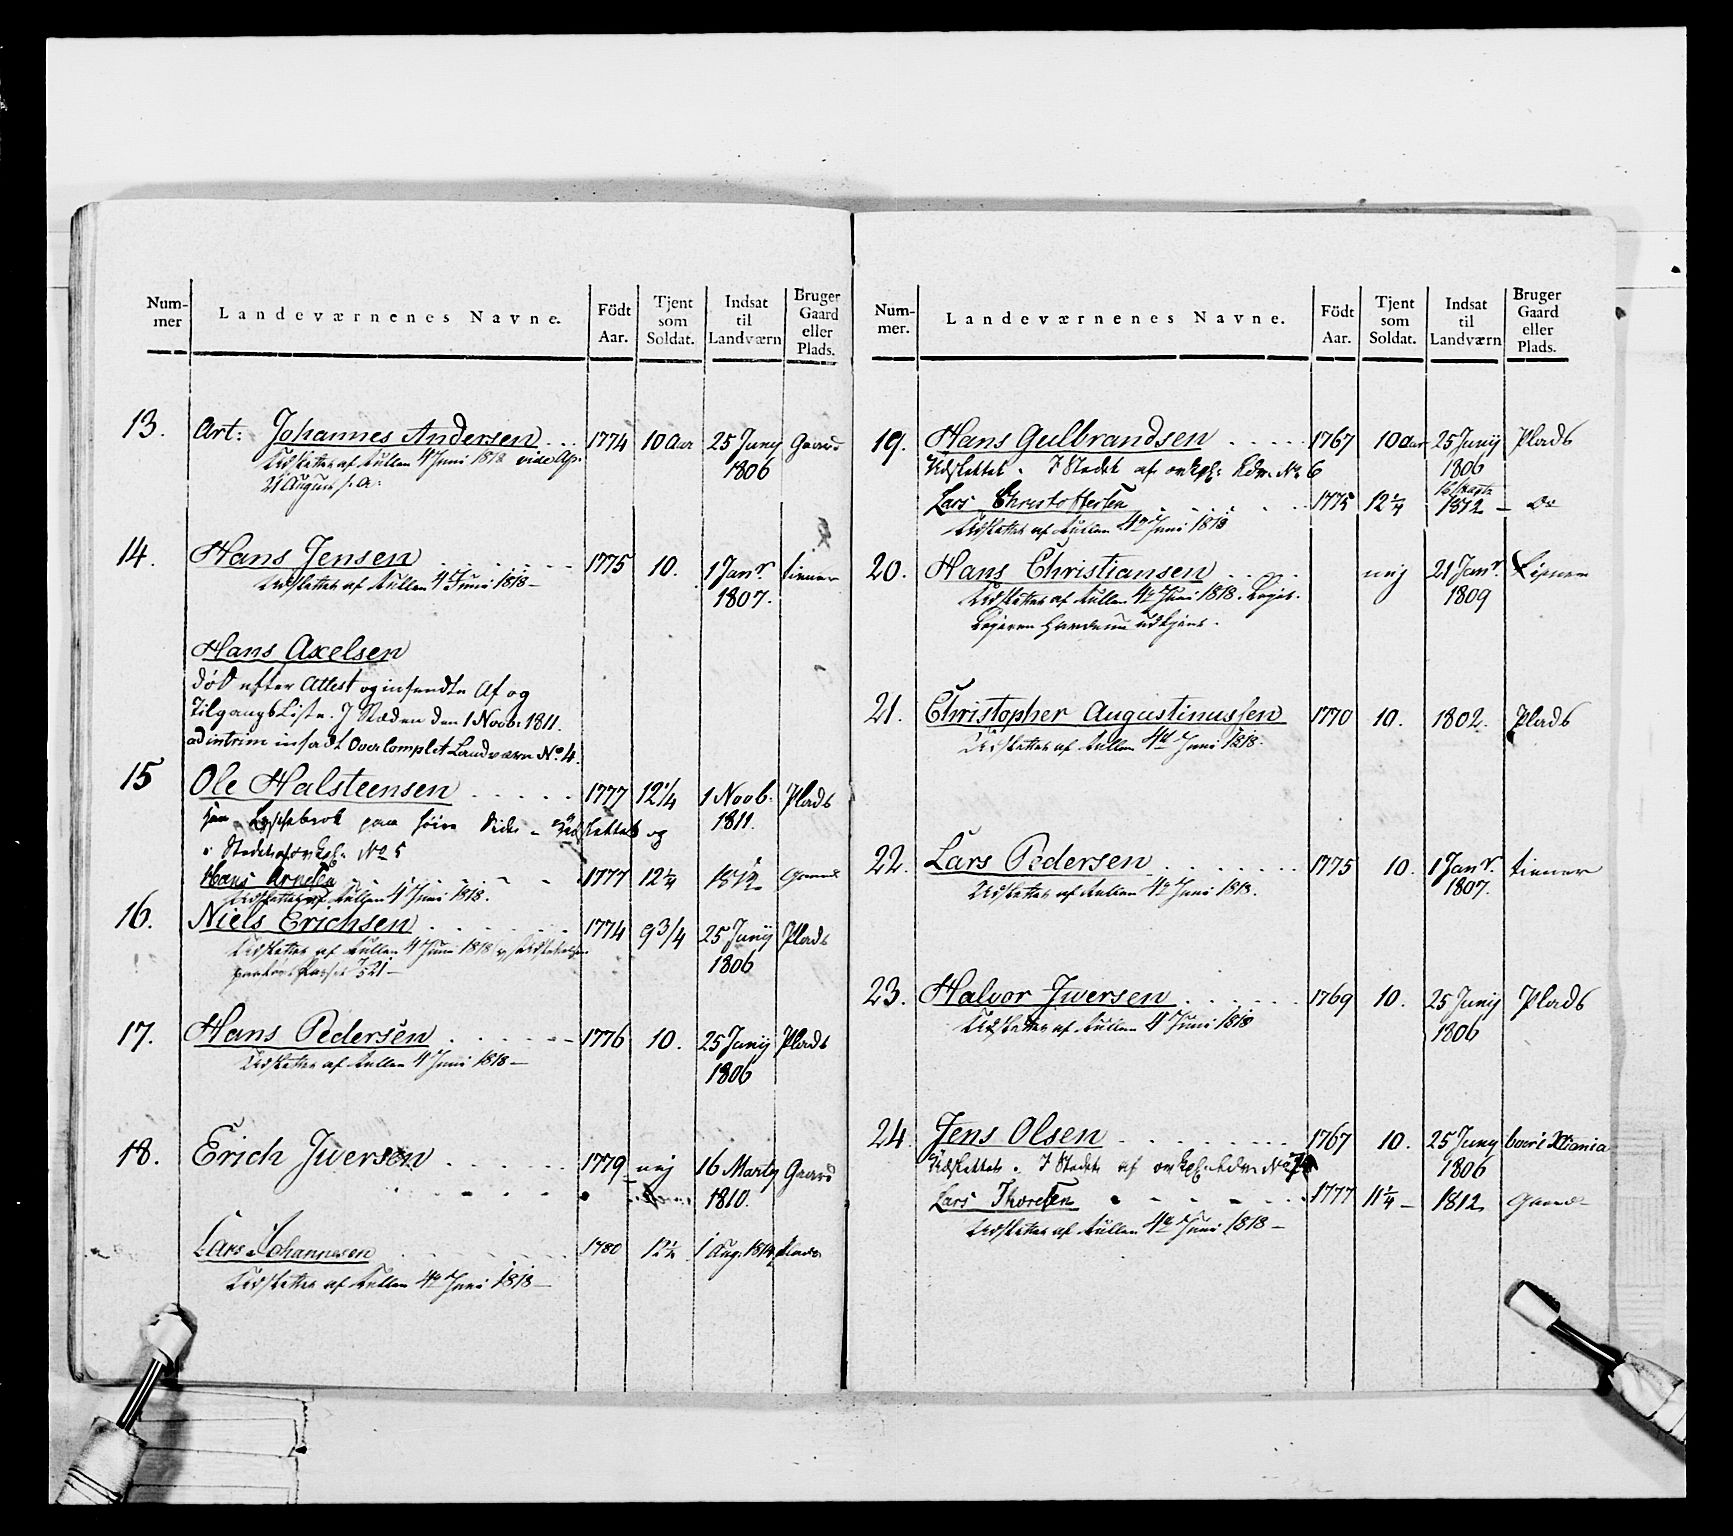 Num-
mer
Landeværnenes Navne.
Födt
Aar.
Tjent
som
Soldat.
Indsat
til
Landværn
Bruger
Gaard
eller
Plads.
13. Art: Johannes Andersen 1774 10 Aar 25 Juny Gaard
Udslettet af Rullen 4 Juni 1818 vide
1806
21 August
14. Hans Jensen 1775 10. 1 Janr. tiener
Udslettet af Rullen 4 Juni 1818
1807.
Hans Axelsen
död efter Attest og insendte Af og
Tilgangs Liste. I Stæden den 1 Novb. 1811.
ad intrim insadt Over Complet Landværn No. 4.
15 Ole Halsteensen 1777 12 1/4 1 Novb. Plads
1811.
har paa høire Side - Udslettet og
i Stedet No 5
Hans Arnesen 1777 12 1/4 1812 Gaard
Udslettet af Rullen 4 Juni 1818.
16. Niels Erichsen 1774 9 3/4 25 Junij Plads
Udslettet af Rullen 4 Juni 1818
1806
521
17. Hans Pedersen 1776 10. 25 Junij Plads
Udslettet af Rullen 4 Juni 1818
1806
18. Erich Iversen 1779 nej 16 Marty Gaard
1810.
Lars Johannesen 1780 12 1/4 1 Aug. 1814 Plads
Udslettet af Rullen 4de Juni 1818
Num-
mer.
Landeværnenes Navne.
Födt
Aar.
Tjent
som
Soldat.
Indsat
til
Landværn
Bruger
Gaard
eller
Plads.
19. Hans Gulbrandsen 1767 10 Aar 25 Junij Plads
Udslettet. I Stedet af No 6
1806
Lars Christoffersen 1775 12 1/4 1812 Do
Udslettet af Rullen 4de Juni 1818
20. Hans Christiansen nej 21 Janr. Tiener
Udslettet af Rullen 4de Juni 1818.
1809
21. Christopher Augustinussen 1770 10. 1802. Plads
Udslettet af Rullen 4de Juni 1818.
22. Lars Pedersen 1775 10. 1 Janr. tiener
Udslettet af Rullen 4de Juni 1818.
1807.
23. Halvor Iversen 1769 10. 25 Junij Plads
Udslettet af Rullen 4 Juni 1818
1806
24. Jens Olsen 1767 10. 25 Juny boer i Xtiania
Udslettet. I Stedet af No 7
1806
Lars Thoresen 1777 11 1/4 1812 Gaard
Udslettet af Rullen 4de Juni 1818